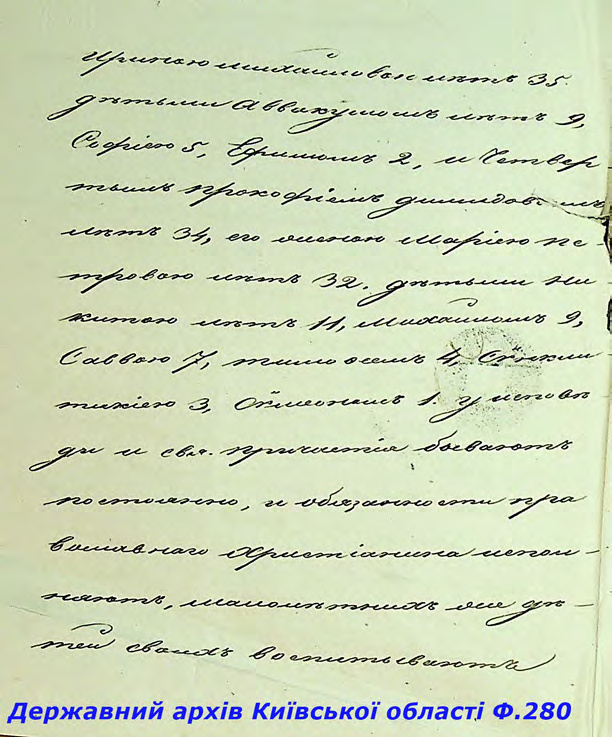 Ириною Михайловою лѣтъ 35.
дѣтьми Аввакумомъ лѣтъ 9,
Софіею 5, Ефимомъ 2, и Четвер-
тымъ Прокофіемъ
лѣтъ 34, его женою Маріею Пе-
тровою лѣтъ 32. дѣтьми Ни-
китою лѣтъ 11, Михаиломъ 9,
Саввою 7, Тимофеемъ 4,
3, 1. у исповѣ
ди и свя. причастія бываютъ
постоянно, и обязанности пра
вославнаго Христіанина испол-
няютъ, малолѣтнихъ же дѣ-
тей своихъ воспитываютъ
Державний архів Київської області Ф.280